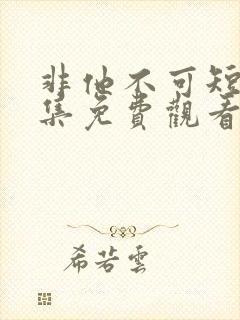 非他不可短
集免費觀看
希若雲